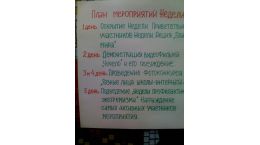 План мероприятий Недели
1 день Открытие Недели Приветствие
участников Недели Акция „Планета
мира"
2 день Демонстрация видеофильма
и его обсуждение
3 и 4 день Проведение фотоконкурса
„Разные лица школы-интерната"
5 день Подведение Недели профилактики
экстремизма" Награждение
самых активных участников
мероприятия